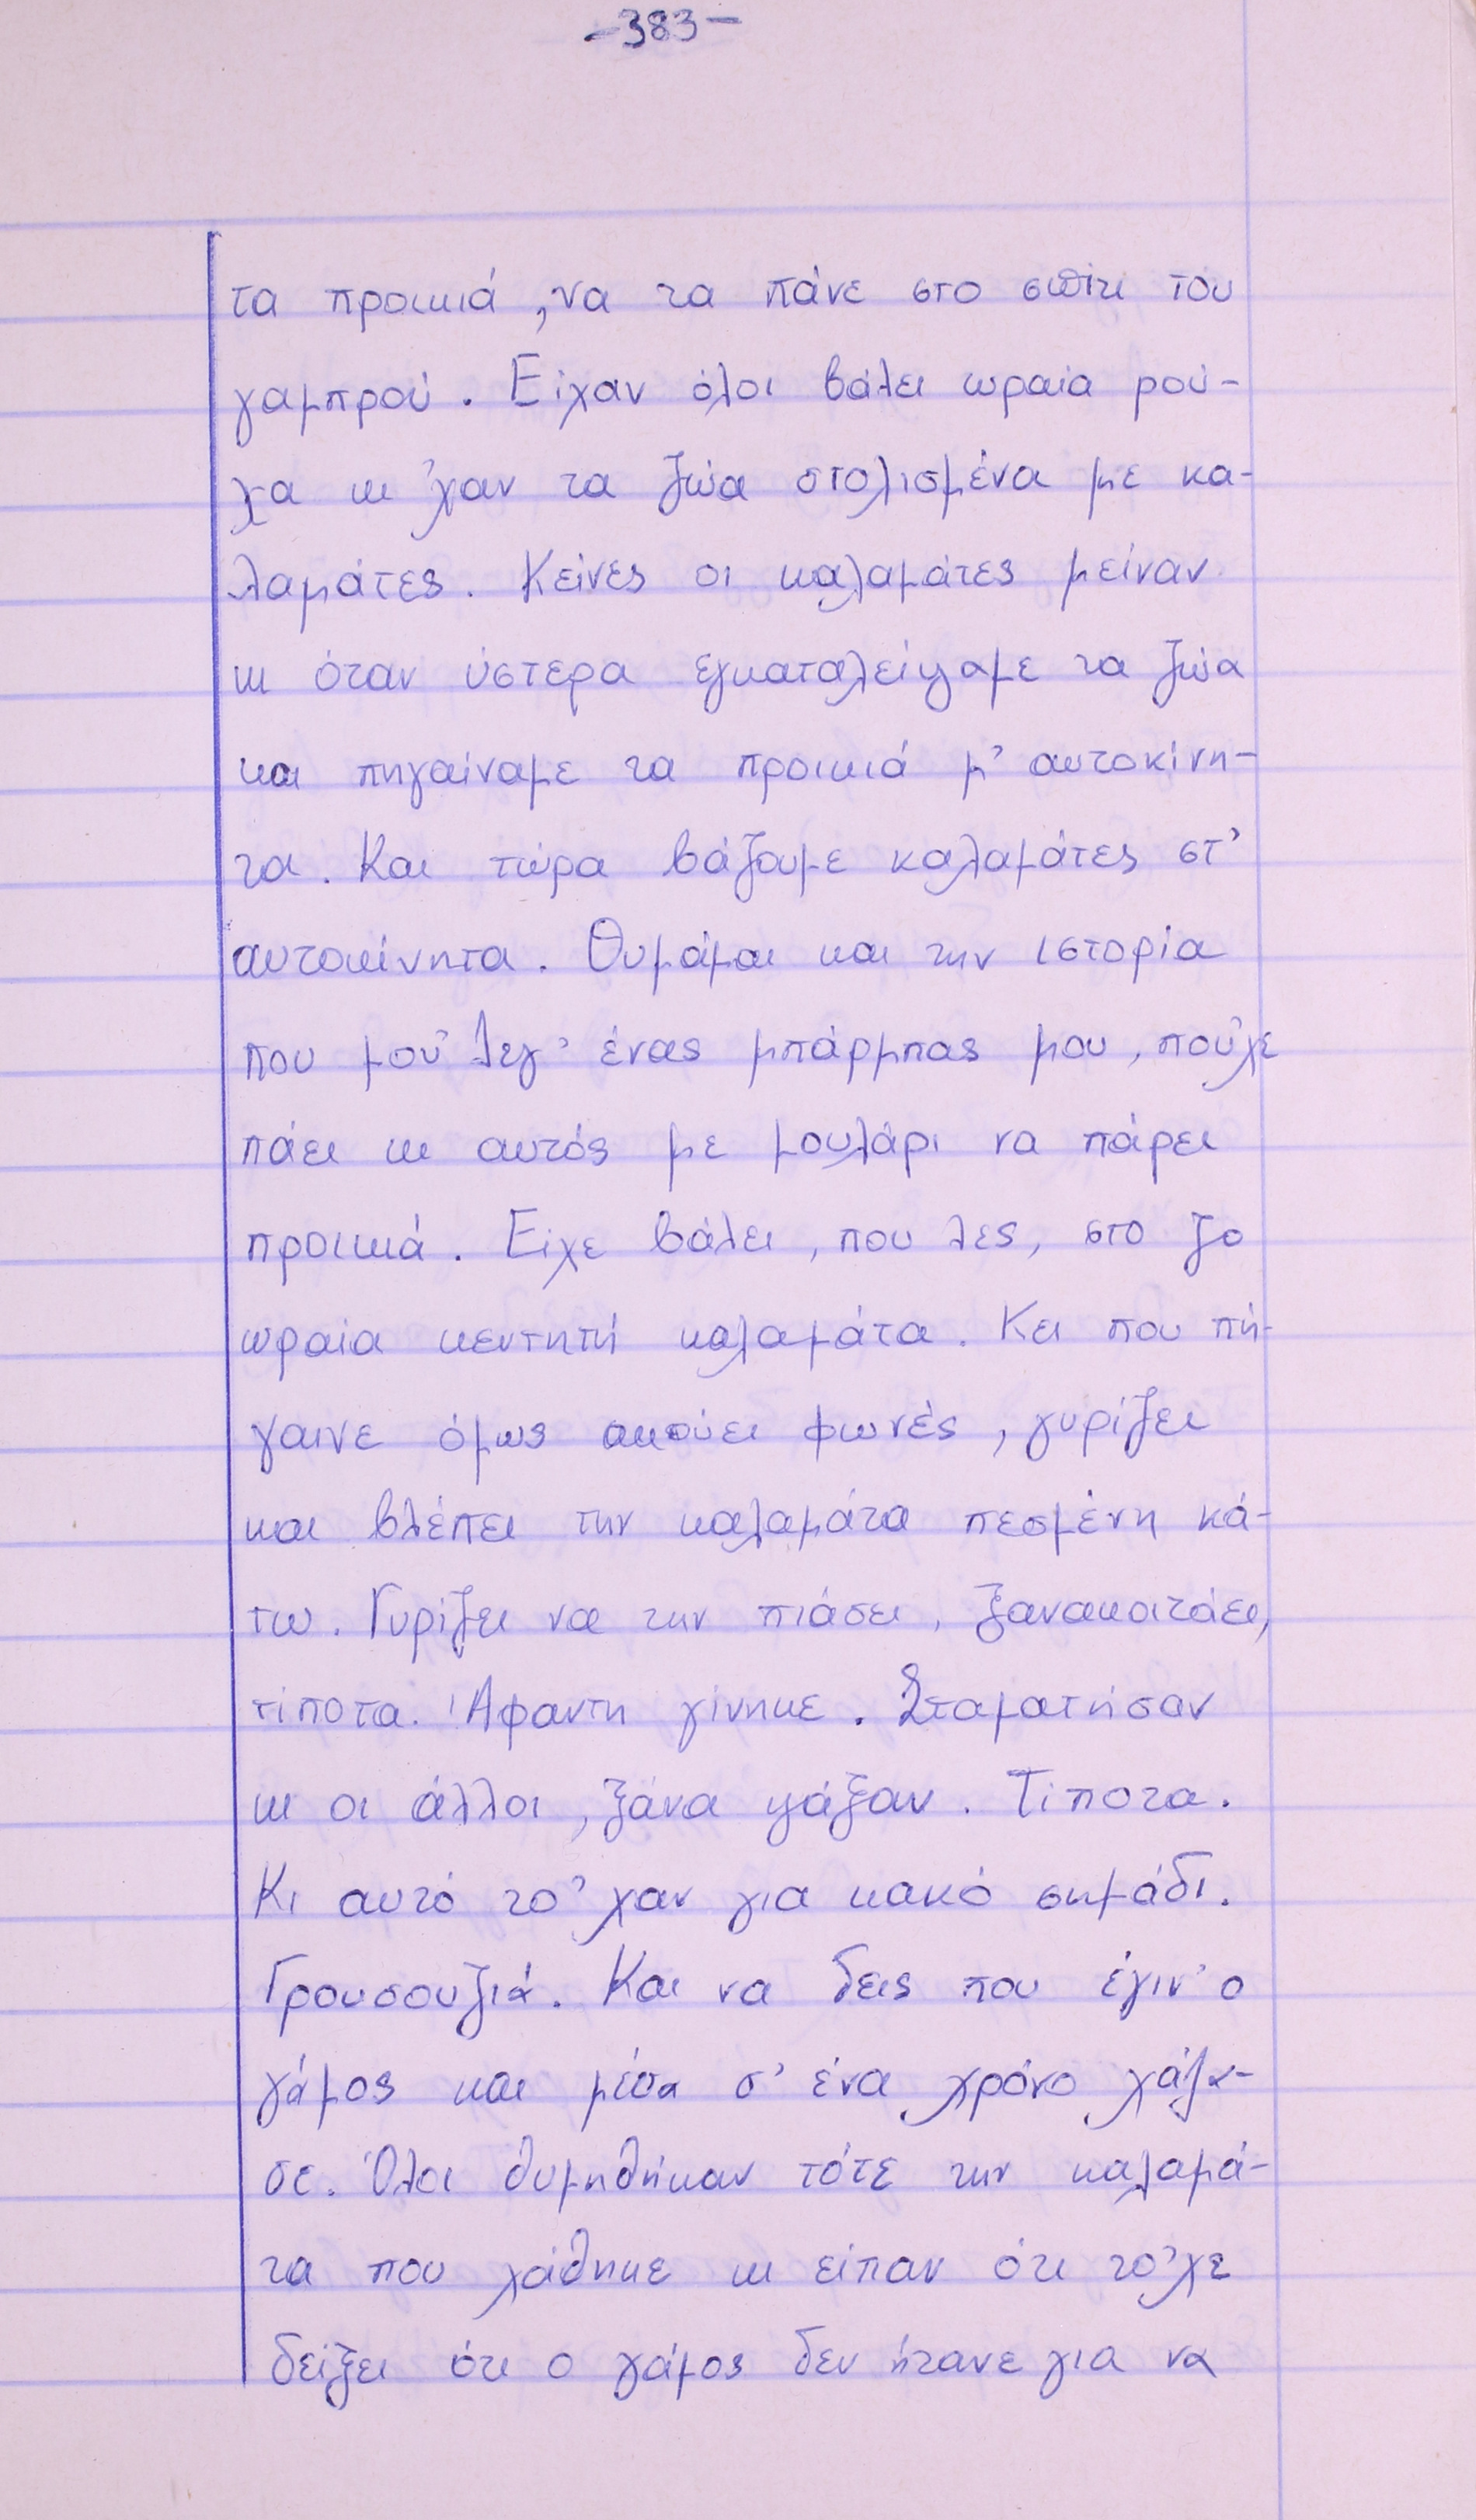 -383-
τα προικιά, να τα πάνε στο σπίτι του
γαμπρού. Είχαν όλοι βάλει ωραία ρού-
χα κι 'χαν τα ζώα στολισμένα με κα-
λαμάτες. Κείνες οι καλαμάτες μείναν
κι όταν ύστερα εγκαταλείψαμε τα ζώα
και πηγαίναμε τα προικιά μ' αυτοκίνη-
τα. Και τώρα βάζουμε καλαμάτες στ'
αυτοκίνητα. Θυμάμαι και την ιστορία
που μού 'λεγ' ένας μπάρμπας μου, πού'χε
πάει κι αυτός με μουλάρι να πάρει
προικιά. Είχε βάλει, που λες, στο ζο
ωραία κεντητή καλαμάτα. Κει που πή-
γαινε όμως ακούει φωνές, γυρίζει
και βλέπει την καλαμάτα πεσμένη κά-
τω. Γυρίζει να την πιάσει, ξανακοιτάει,
τίποτα. Άφαντη γίνηκε. Σταματήσαν
κι οι άλλοι, ξάνα ψάξαν. Τίποτα.
Κι αυτό το' χαν για κακό σημάδι.
Γρουσουζιά. Και να δεις που έγιν' ο
γάμος και μέσα σ' ένα χρόνο χάλα-
σε. Όλοι θυμηθήκαν τότε την καλαμά-
τα που χάθηκε κι είπαν ότι το'χε
δείξει ότι ο γάμος δεν ήτανε για να